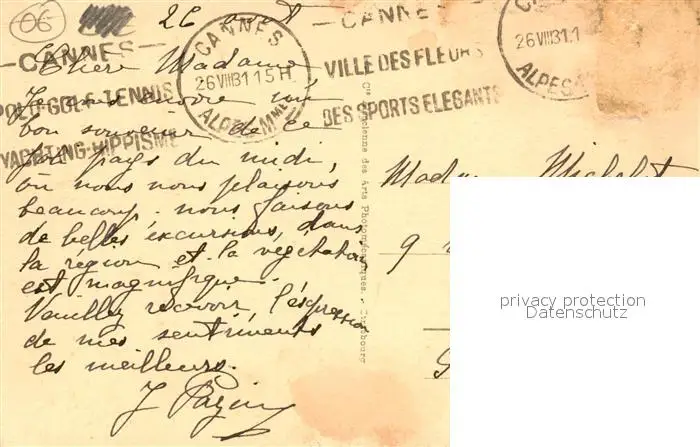 06
26 août
CANNES
Chère Madame
POLO-GOLF-TENNIS
YACHTING-HIPPISME
CANNES
26 VIII 31 15 H
ALPES MMES
CANNES
VILLE DES FLEURS
DES SPORTS ELEGANTS
26 VIII 31 1
ALPES
Je vous envoie un
bon souvenir de ce
joli pays du midi,
où nous nous plaisons
beaucoup. nous faisons
de belles excursions, dans
la région et la végétation
est magnifique.
Veuillez recevoir l'expression
de mes sentiments
les meilleurs.
J
des Arts Photomécaniques
Strasbourg
Madame Michelet
9
privacy protection
Datenschutz